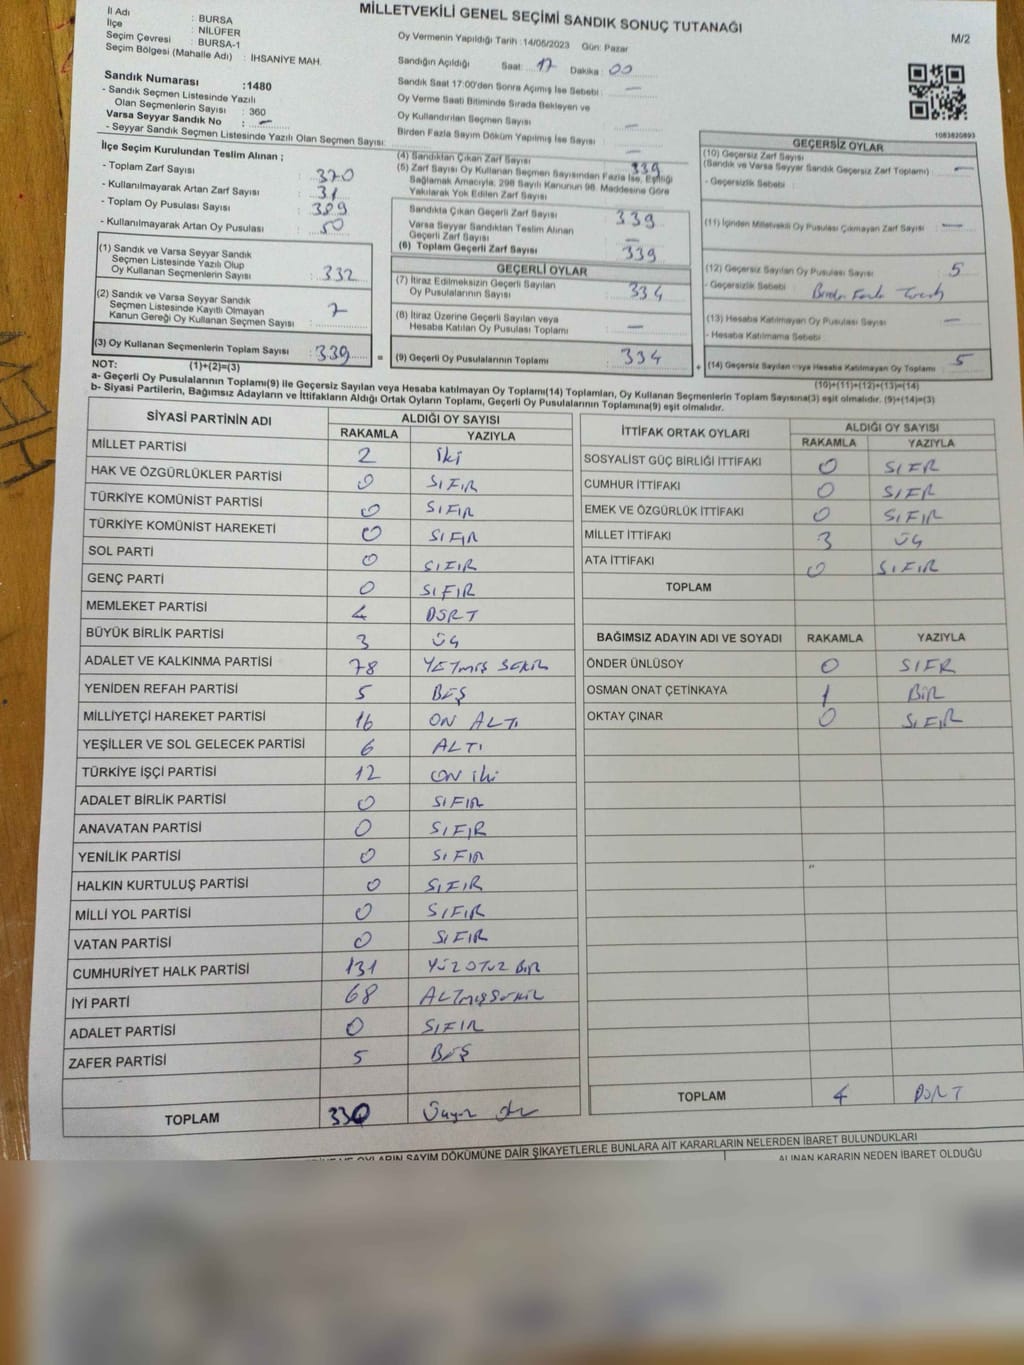 MİLLETVEKİLİ GENEL SEÇİMİ SANDIK SONUÇ TUTANAĞI
M/2
İl Adı : BURSA
İlçe : NİLÜFER
Seçim Çevresi : BURSA-1
Seçim Bölgesi (Mahalle Adı) : İHSANİYE MAH.
Sandık Numarası :1480
- Sandık Seçmen Listesinde Yazılı
Olan Seçmenlerin Sayısı : 360
Varsa Seyyar Sandık No : —
- Seyyar Sandık Seçmen Listesinde Yazılı Olan Seçmen Sayısı:
Oy Vermenin Yapıldığı Tarih :14/05/2023 Gün: Pazar
Sandığın Açıldığı Saat: 17 Dakika : 00
Sandık Saat 17:00'den Sonra Açımış İse Sebebi : —
Oy Verme Saati Bitiminde Sırada Bekleyen ve
Oy Kullandırılan Seçmen Sayısı —
Birden Fazla Sayım Döküm Yapılmış İse Sayısı : —
1083820893
İlçe Seçim Kurulundan Teslim Alınan ;
- Toplam Zarf Sayısı : 370
- Kullanılmayarak Artan Zarf Sayısı : 31
- Toplam Oy Pusulası Sayısı : 389
- Kullanılmayarak Artan Oy Pusulası : 50
(1) Sandık ve Varsa Seyyar Sandık
Seçmen Listesinde Yazılı Olup
Oy Kullanan Seçmenlerin Sayısı : 332
(2) Sandık ve Varsa Seyyar Sandık
Seçmen Listesinde Kayıtlı Olmayan
Kanun Gereği Oy Kullanan Seçmen Sayısı : 7
(3) Oy Kullanan Seçmenlerin Toplam Sayısı : 339 =
(1)+(2)=(3)
(4) Sandıktan Çıkan Zarf Sayısı 339
(5) Zarf Sayısı Oy Kullanan Seçmen Sayısından Fazla İse, Eşitliği
Sağlamak Amacıyla, 298 Sayılı Kanunun 98. Maddesine Göre
Yakılarak Yok Edilen Zarf Sayısı
Sandıkta Çıkan Geçerli Zarf Sayısı : 339
Varsa Seyyar Sandıktan Teslim Alınan
Geçerli Zarf Sayısı : —
(6) Toplam Geçerli Zarf Sayısı : 339
GEÇERLİ OYLAR
(7) İtiraz Edilmeksizin Geçerli Sayılan
Oy Pusulalarının Sayısı : 334
(8) İtiraz Üzerine Geçerli Sayılan veya
Hesaba Katılan Oy Pusulası Toplamı : —
(9) Geçerli Oy Pusulalarının Toplamı : 334 +
GEÇERSİZ OYLAR
(10) Geçersiz Zarf Sayısı
(Sandık ve Varsa Seyyar Sandık Geçersiz Zarf Toplamı) : —
- Geçersizlik Sebebi :
(11) İçinden Milletvekili Oy Pusulası Çıkmayan Zarf Sayısı : —
(12) Geçersiz Sayılan Oy Pusulası Sayısı : 5
- Geçersizlik Sebebi : Birden Fazla
(13) Hesaba Katılmayan Oy Pusulası Sayısı : —
- Hesaba Katılmama Sebebi :
(14) Geçersiz Sayılan veya Hesaba Katılmayan Oy Toplamı : 5
(10)+(11)+(12)+(13)=(14)
NOT:
a- Geçerli Oy Pusulalarının Toplamı(9) ile Geçersiz Sayılan veya Hesaba katılmayan Oy Toplamı(14) Toplamları, Oy Kullanan Seçmenlerin Toplam Sayısına(3) eşit olmalıdır. (9)+(14)=(3)
b- Siyasi Partilerin, Bağımsız Adayların ve İttifakların Aldığı Ortak Oyların Toplamı, Geçerli Oy Pusulalarının Toplamına(9) eşit olmalıdır.
SİYASİ PARTİNİN ADI ALDIĞI OY SAYISI
RAKAMLA YAZIYLA
MİLLET PARTİSİ 2 iki
HAK VE ÖZGÜRLÜKLER PARTİSİ 0 SIFIR
TÜRKİYE KOMÜNİST PARTİSİ 0 SIFIR
TÜRKİYE KOMÜNİST HAREKETİ 0 SIFIR
SOL PARTİ 0 SIFIR
GENÇ PARTİ 0 SIFIR
MEMLEKET PARTİSİ 4 DÖRT
BÜYÜK BİRLİK PARTİSİ 3 ÜÇ
ADALET VE KALKINMA PARTİSİ 78 YETMİŞ SEKİZ
YENİDEN REFAH PARTİSİ 5 BEŞ
MİLLİYETÇİ HAREKET PARTİSİ 16 ON ALTI
YEŞİLLER VE SOL GELECEK PARTİSİ 6 ALTI
TÜRKİYE İŞÇİ PARTİSİ 12 ON iki
ADALET BİRLİK PARTİSİ 0 SIFIR
ANAVATAN PARTİSİ 0 SIFIR
YENİLİK PARTİSİ 0 SIFIR
HALKIN KURTULUŞ PARTİSİ 0 SIFIR
MİLLİ YOL PARTİSİ 0 SIFIR
VATAN PARTİSİ 0 SIFIR
CUMHURİYET HALK PARTİSİ 131 YÜZ OTUZ BİR
İYİ PARTİ 68 ALTMIŞ SEKİZ
ADALET PARTİSİ 0 SIFIR
ZAFER PARTİSİ 5 BEŞ
TOPLAM 330
İTTİFAK ORTAK OYLARI ALDIĞI OY SAYISI
RAKAMLA YAZIYLA
SOSYALİST GÜÇ BİRLİĞİ İTTİFAKI 0 SIFIR
CUMHUR İTTİFAKI 0 SIFIR
EMEK VE ÖZGÜRLÜK İTTİFAKI 0 SIFIR
MİLLET İTTİFAKI 3 ÜÇ
ATA İTTİFAKI 0 SIFIR
TOPLAM
BAĞIMSIZ ADAYIN ADI VE SOYADI RAKAMLA YAZIYLA
ÖNDER ÜNLÜSOY 0 SIFIR
OSMAN ONAT ÇETİNKAYA 1 BİR
OKTAY ÇINAR 0 SIFIR
TOPLAM 4 DÖRT
OYLARIN SAYIM DÖKÜMÜNE DAİR ŞİKAYETLERLE BUNLARA AİT KARARLARIN NELERDEN İBARET BULUNDUKLARI
ALINAN KARARIN NEDEN İBARET OLDUĞU